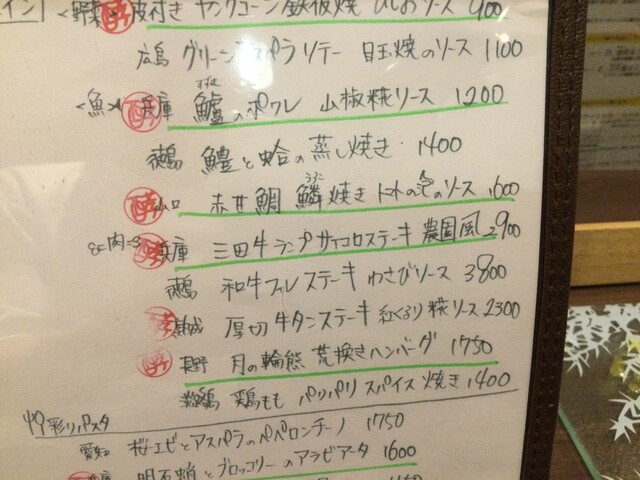 イン] <野菜> 皮付き ヤングコーン鉄板焼 ひしおソース 900
広島 グリーンアスパラソテー 目玉焼のソース 1100
<魚> 兵庫 鱸のポワレ 山椒糀ソース 1200
すずき
徳島 鱧と蛤の蒸し焼き 1400
山口 赤甘鯛 鱗焼き トマトの のソース 1600
うろこ
<肉> 兵庫 三田牛ランプサイコロステーキ 農園風 2900
徳島 和牛フィレステーキ わさびソース 3800
宮城 厚切牛タンステーキ 紅くるり糀ソース 2300
長野 月の輪熊 荒挽きハンバーグ 1750
鶏もも パリパリスパイス焼き 1400
彩りパスタ
愛知 桜エビとアスパラのペペロンチーノ 1750
兵庫 明石蛸とブロッコリーのアラビアータ 1600